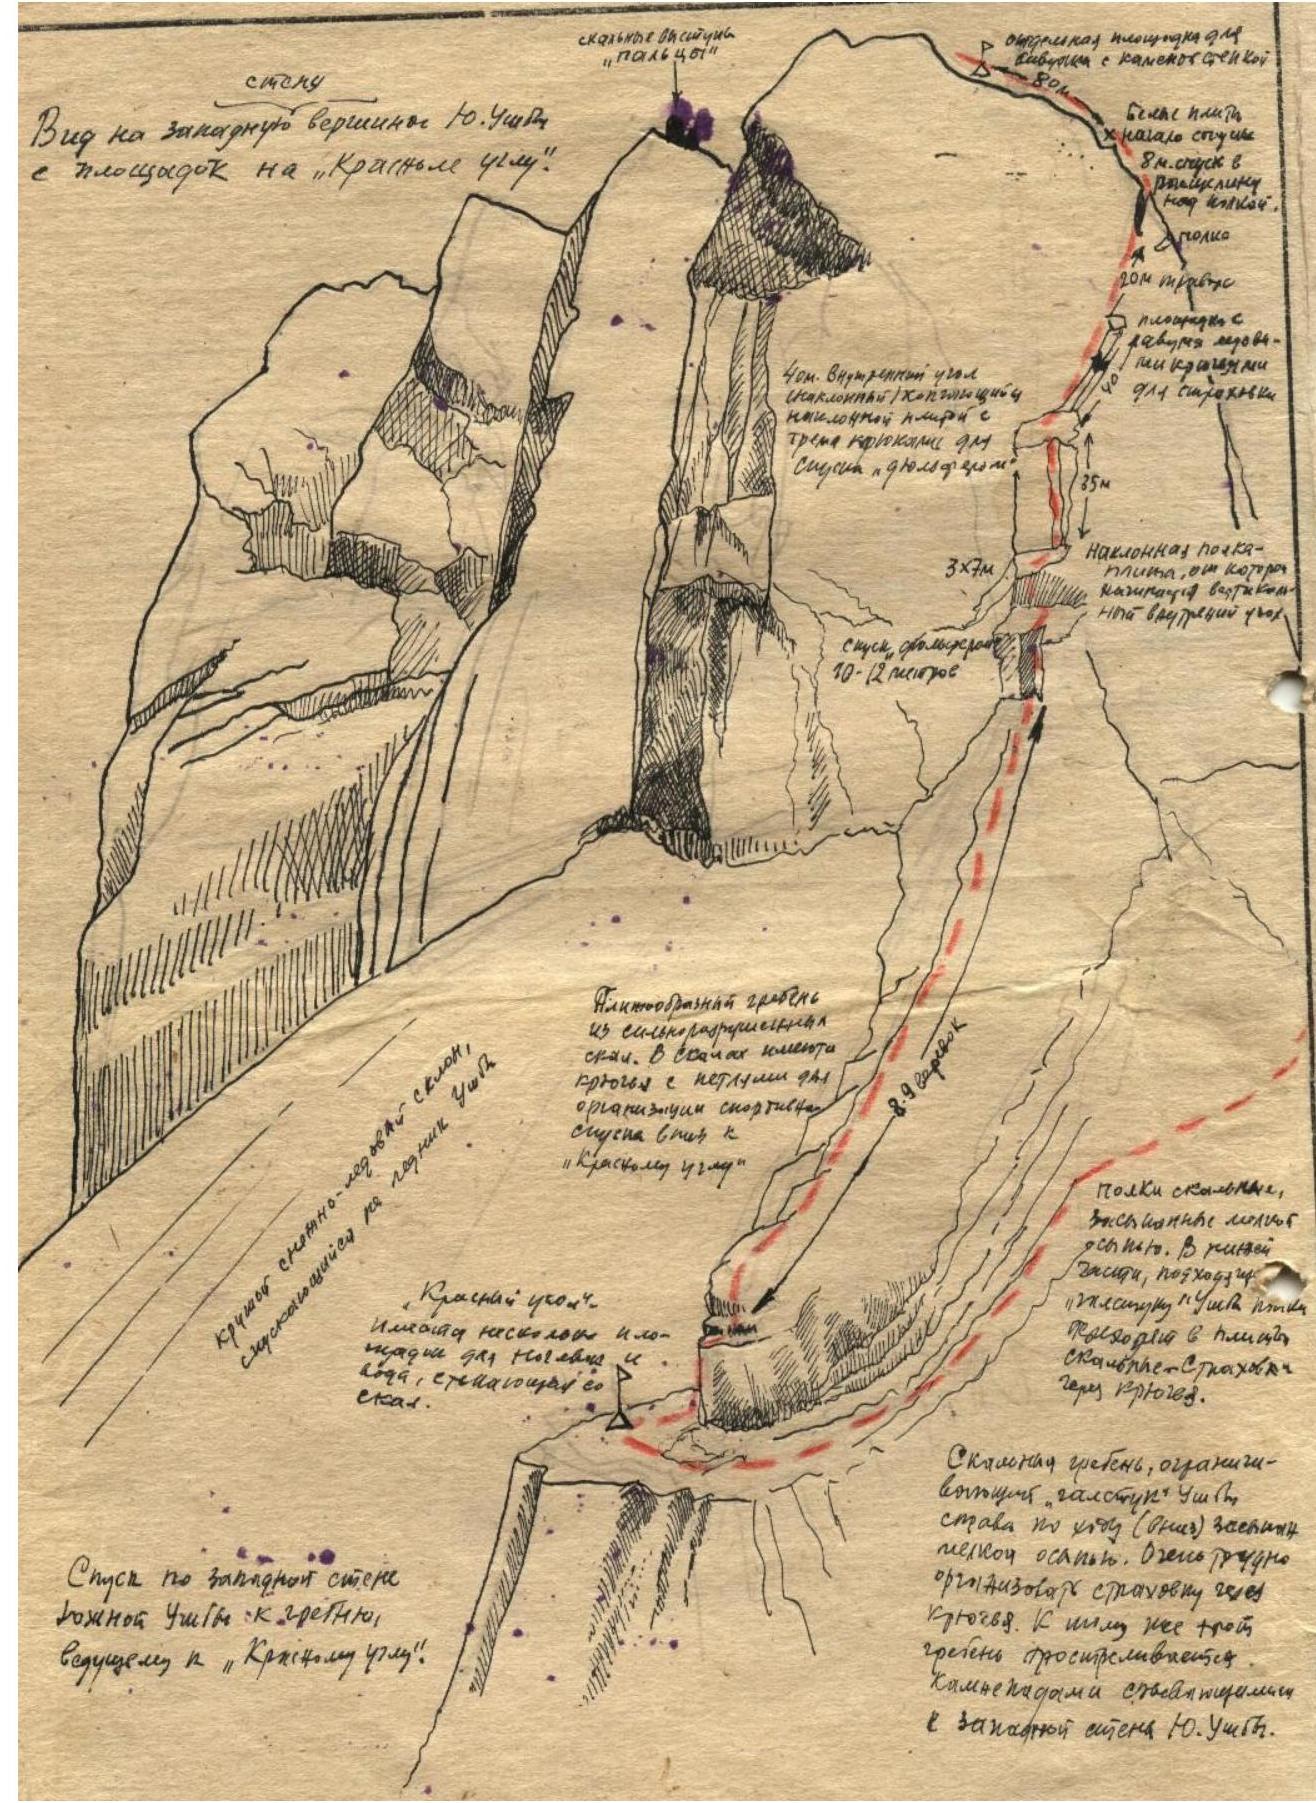 стену
Вид на западную вершины Ю.Ушбы
с площадок на „Красном углу".
скальные выступы
„пальцы"
отдельная площадка для
бивуака с каменой стенкой
80м
Белые плиты
начало спуска
8 м. спуск в
расщелину
над полкой.
полка
20м траверс
площадка с
двумя
крючьями
для страховки
40
40м. Внутренний угол
(наклонный) кончающийся
наклонной плитой с
тремя крюками для
спуска „дюльфером"
35м
3х7м
Наклонная полка-
плита, от которой
начинается вертикаль-
ный внутрений угол
спуск „дюльфером"
10-12 метров
Плитообразный гребень
из сильноразрушенных
скал. В скалах имеются
крючья с петлями для
организации спортивно
спуска вниз к
„Красному углу"
8-9 веревок
крутой снежно-ледовый склон,
спускающийся на ледник Ушбы
„Красный угол"-
имеется несколько пло-
щадок для ночевки и
вода, стекающая со
скал.
полки скальные,
засыпанные мелкой
осыпью. В нижней
части, подходящ
„галстуку" Ушбы полки
переходят в плиты
скальные. Страховка
через крючья.
Скальный гребень, ограничи-
вающий „галстук" Ушбы
справа по ходу (вниз) засыпан
мелкой осыпью. Очень трудно
организовать страховку через
крючья. К тому же этот
гребень простреливается
камнепадами
с западной стены Ю.Ушбы.
Спуск по западной стене
Южной Ушбы к гребню,
ведущему к „Красному углу".